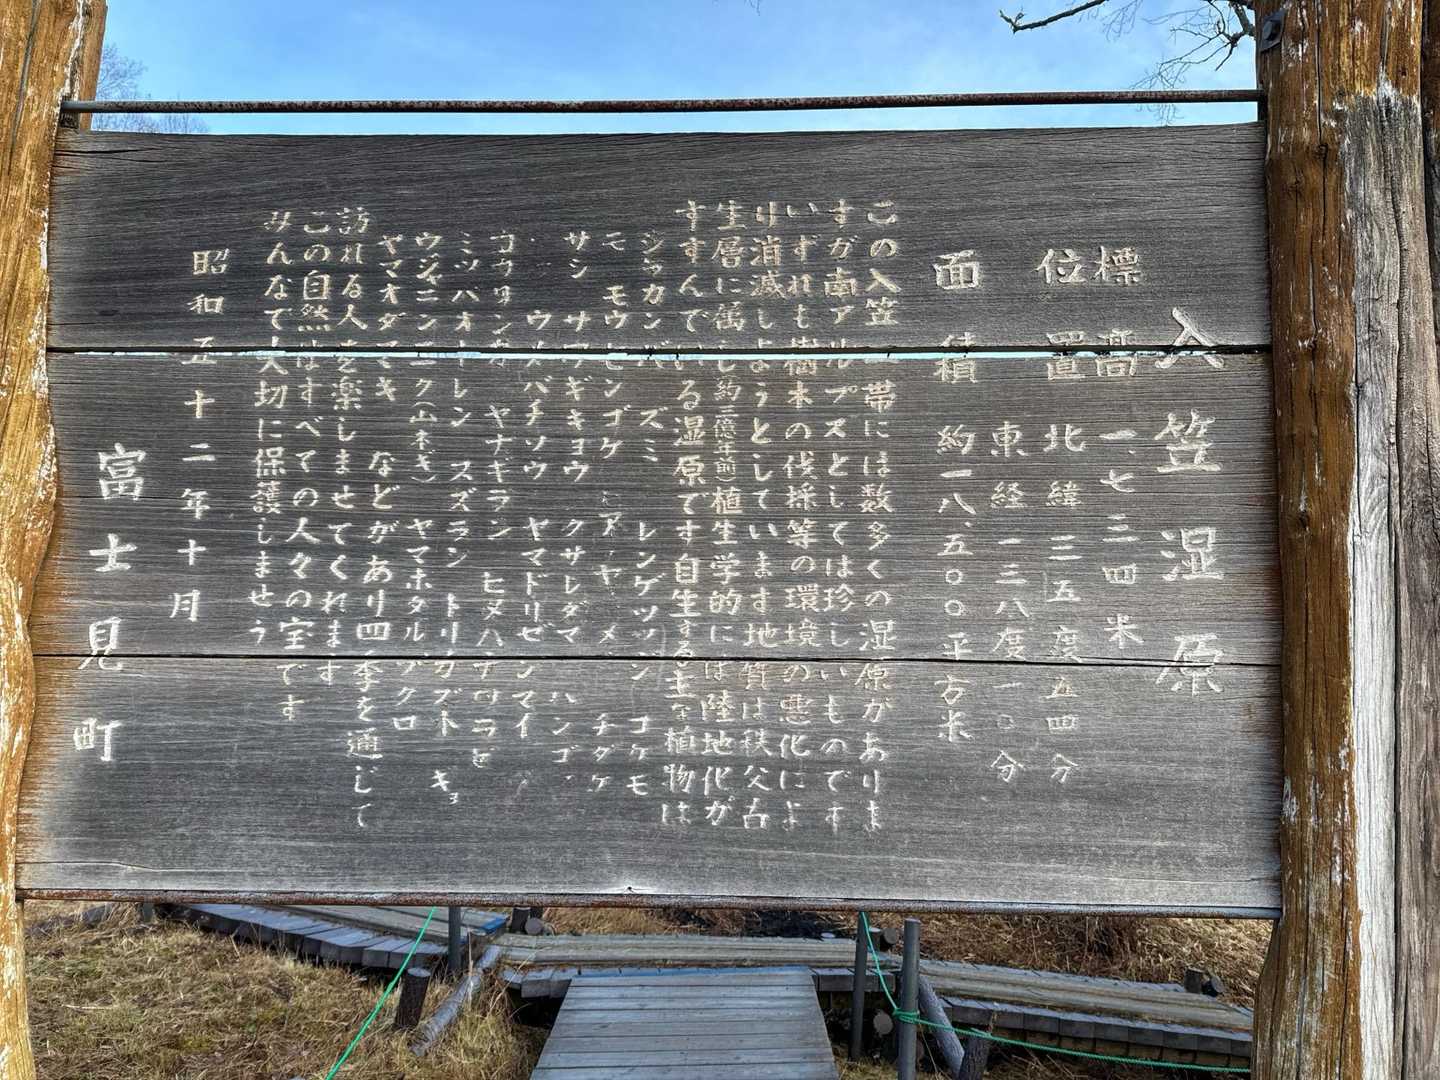 入笠湿原
標高 一、七三四米
位置 北緯 三五度五四分
東経 一三八度一〇分
面積 約一八、五〇〇平方米
この入笠一帯には数多くの湿原がありま
すが南アルプスとしては珍しいものです
いずれも樹木の伐採等の環境の悪化によ
り消滅しようとしています地質は秩父古
生層に属し(約二億年前)植生学的には陸地化が
すすんでいる湿原です自生する主な植物は
ズミ レンゲツツジ コケモ
モ モウセンゴケ アヤメ チダケ
サシ サワギキョウ クサレダマ ハンゴ
ウメバチソウ ヤマドリゼンマイ
ヤナギラン
ミツバオーレン スズラン トリカブト キョ
ヤマホタルブクロ
ヤマオダマキ などがあり四季を通じて
訪れる人々を楽しませてくれます
この自然はすべての人々の宝です
みんなで大切に保護しませう
昭和五十二年十月
富士見町